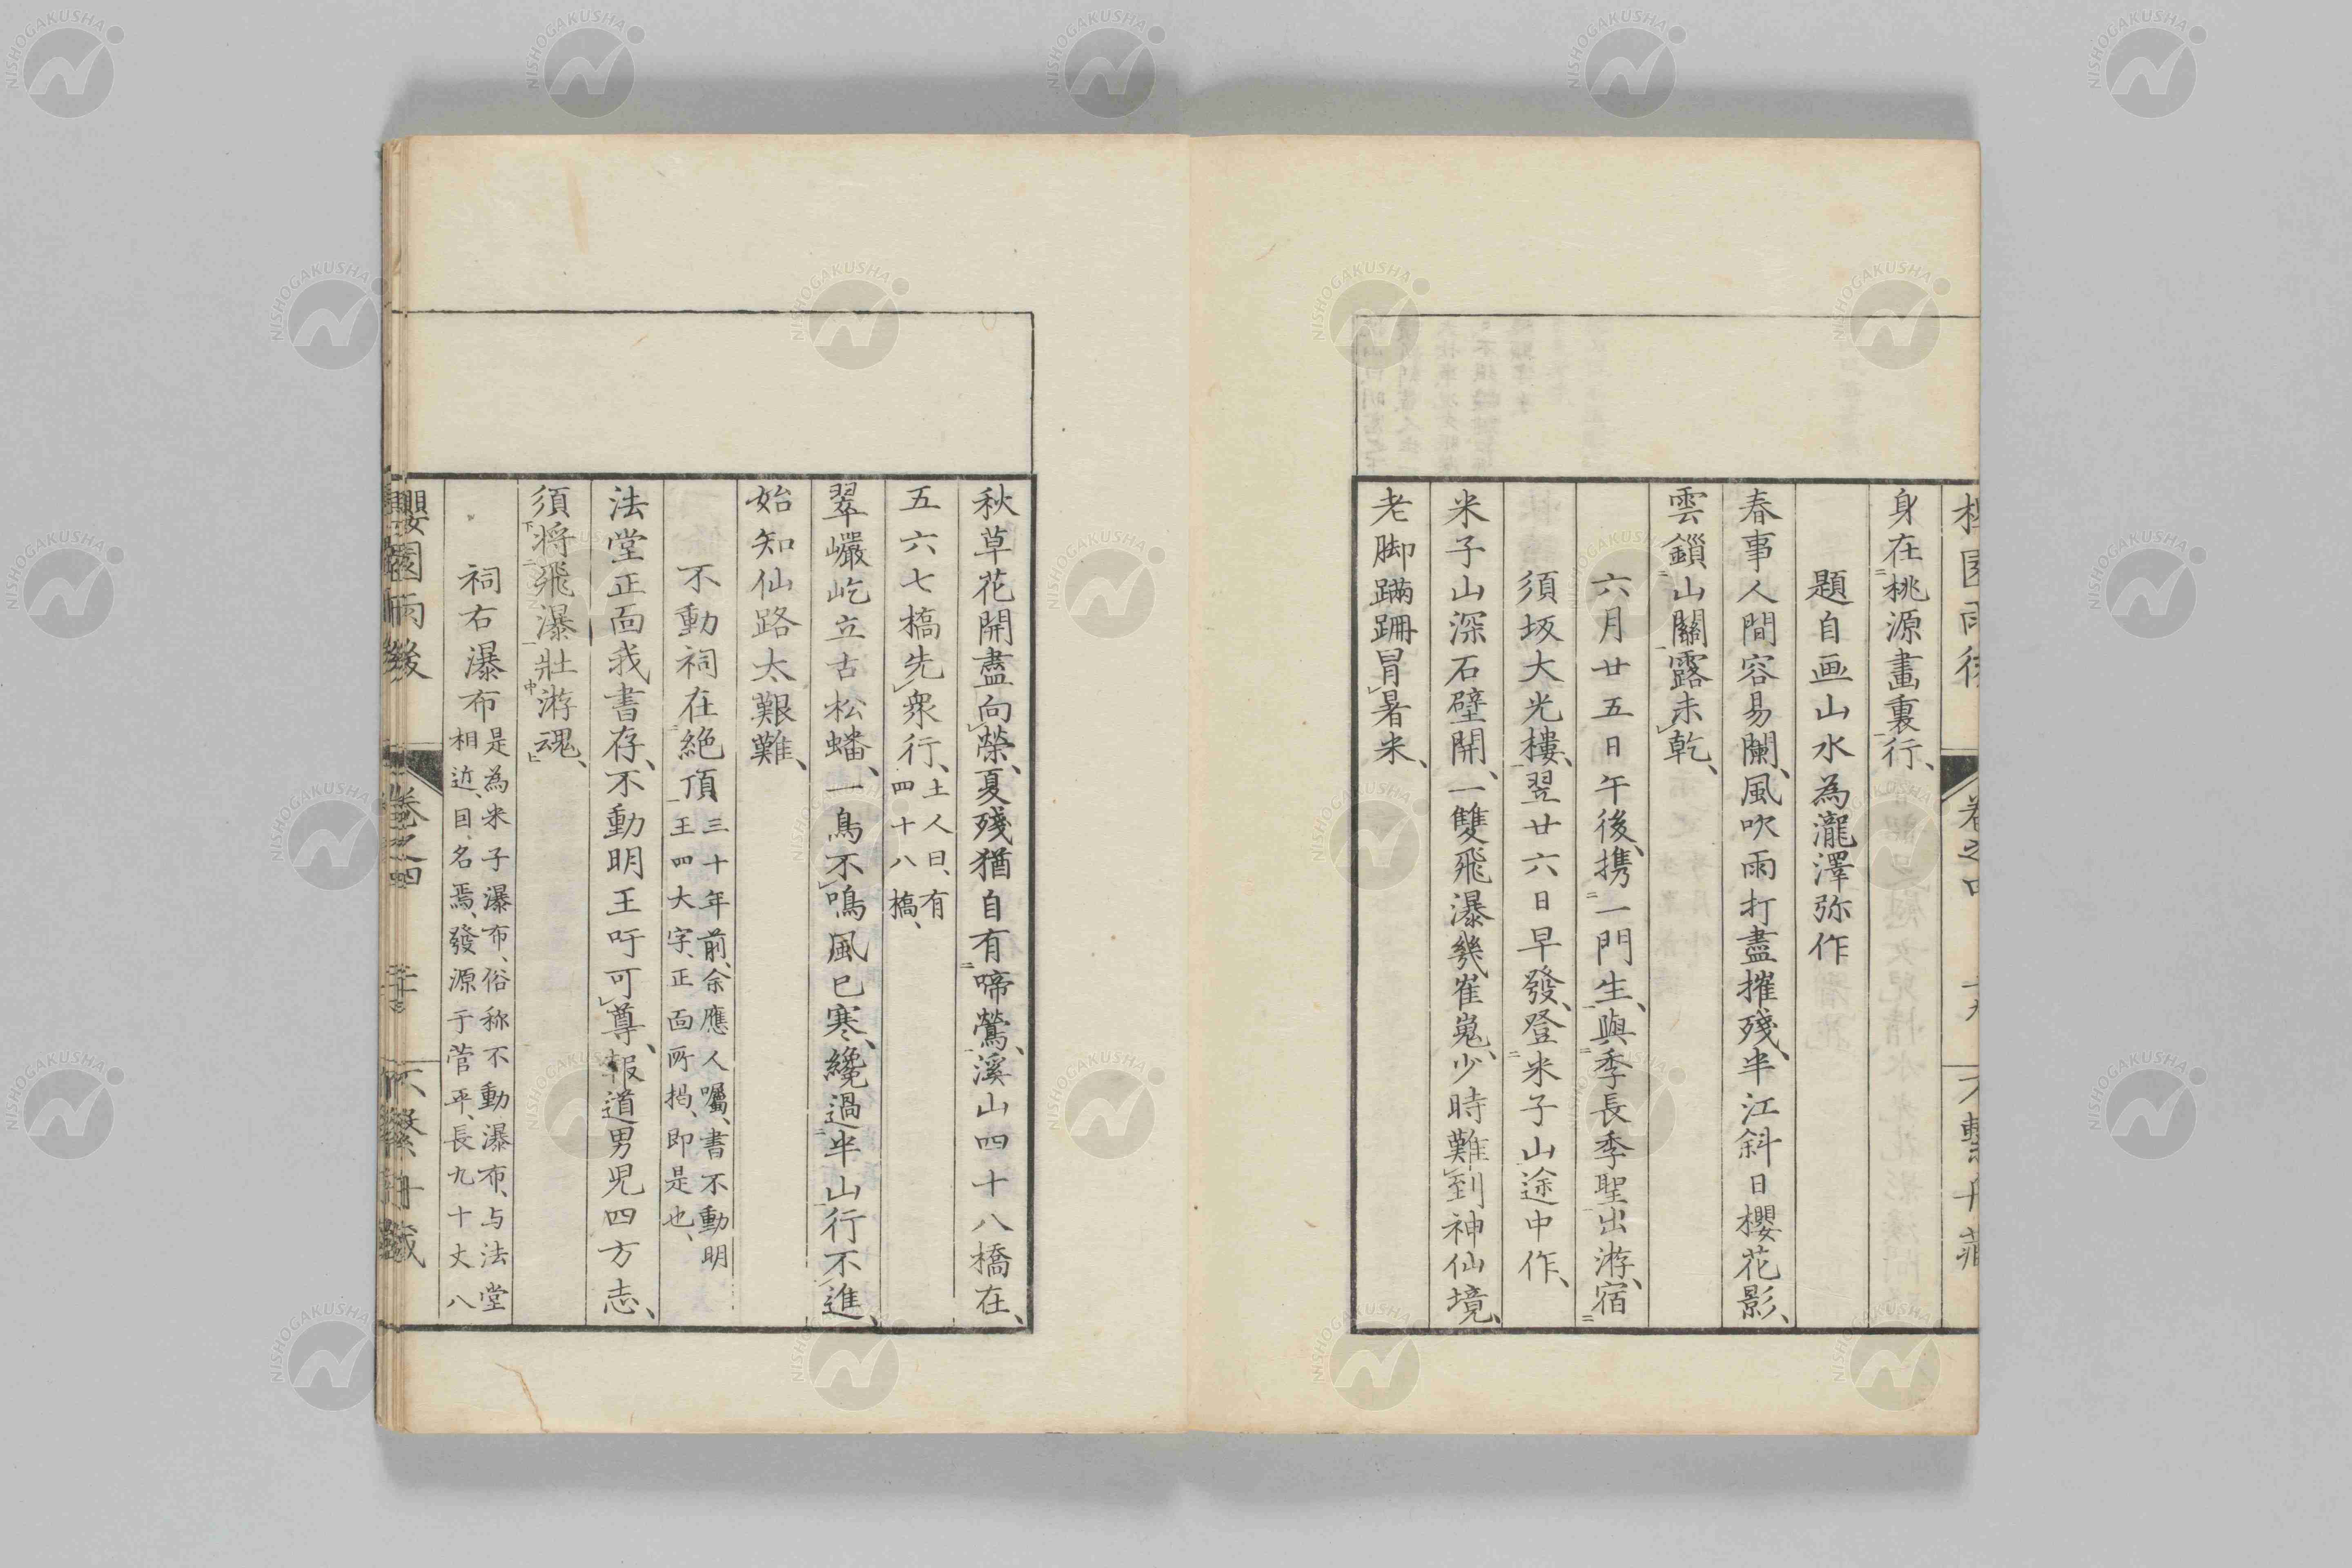 身在桃源畫裏行、
題自画山水為瀧澤弥作
春事人間容易闌、風吹雨打盡摧殘、半江斜日櫻花影、
雲鎖山關露未乾、
六月廿五日午後、携一門生、與季長季聖出游、宿
須坂大光樓、翌廿六日早發、登米子山途中作、
米子山深石壁開、一雙飛瀑幾崔嵬、少時難到神仙境、
老脚蹣跚冒暑来、
秋草花開盡向榮、夏殘猶自有啼鶯、溪山四十八橋在、
五六七橋先衆行、土人曰、有
四十八橋、
翠巖屹立古松蟠、一鳥不鳴風已寒、纔過半山行不進、
始知仙路太艱難、
不動祠在絶頂三十年前、余應人囑、書不動明
王四大字、正面所揭、即是也、
法堂正面我書存、不動明王吁可尊、報道男児四方志、
須将飛瀑壯游魂、
下二一中上
祠右瀑布是為米子瀑布、俗称不動瀑布、与法堂
相近、因名焉、發源于菅平、長九十丈八
櫻園雨後
卷之四
NISHOGAKUSHA